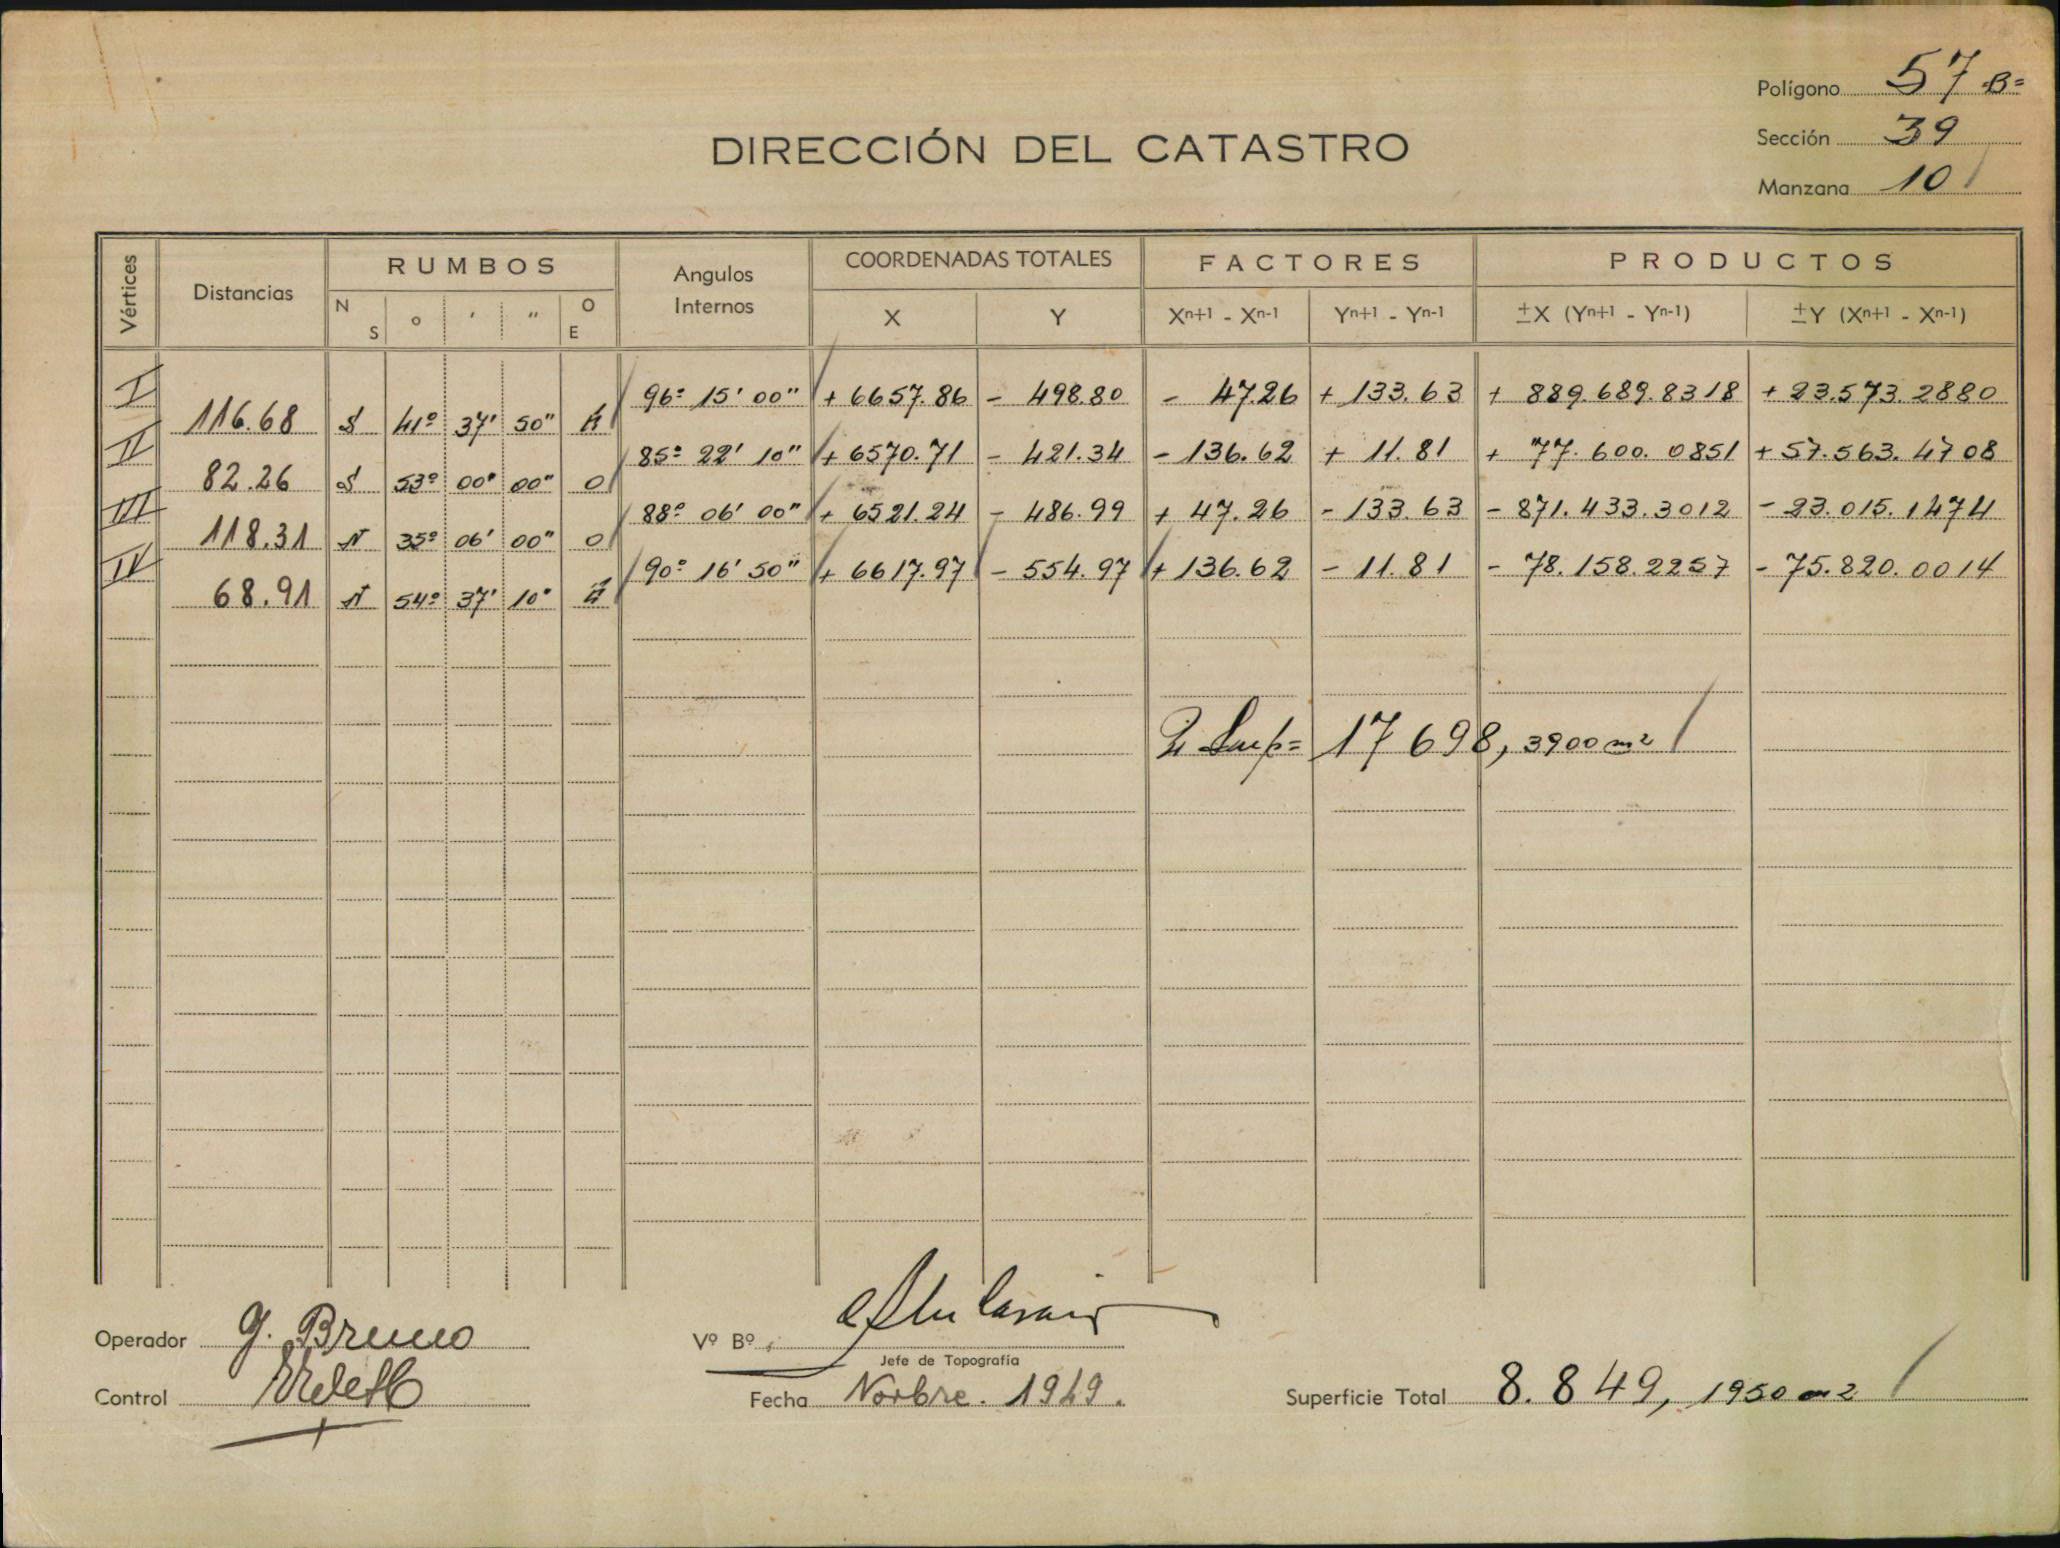 Polígono 57 B=
DIRECCIÓN DEL CATASTRO
Sección 39
Manzana 10
Vértices Distancias RUMBOS Angulos Internos COORDENADAS TOTALES FACTORES PRODUCTOS
N S ° ' " O E X Y Xn+1 - Xn-1 Yn+1 - Yn-1 ±X (Yn+1 - Yn-1) ±Y (Xn+1 - Xn-1)
I 96º 15' 00" + 6657.86 - 498.80 - 47.26 + 133.63 + 889.689.8318 + 23.573.2880
116.68 S 41º 37' 50"
II 85º 22' 10" + 6570.71 - 421.34 - 136.62 + 11.81 + 77.600.0851 + 57.563.4708
82.26 S 53º 00' 00" O
III 88º 06' 00" + 6521.24 - 486.99 + 47.26 - 133.63 - 871.433.3012 - 23.015.1474
118.31 N 35º 06' 00" O
IV 90º 16' 50" + 6617.97 - 554.97 + 136.62 - 11.81 - 78.158.2257 - 75.820.0014
68.91 N 54º 37' 10"
2 Sup= 17698,3900 m2
Operador G. Bruno
Vº Bº
Jefe de Topografía
Control
Fecha Novbre. 1949.
Superficie Total 8.849,1950 m2